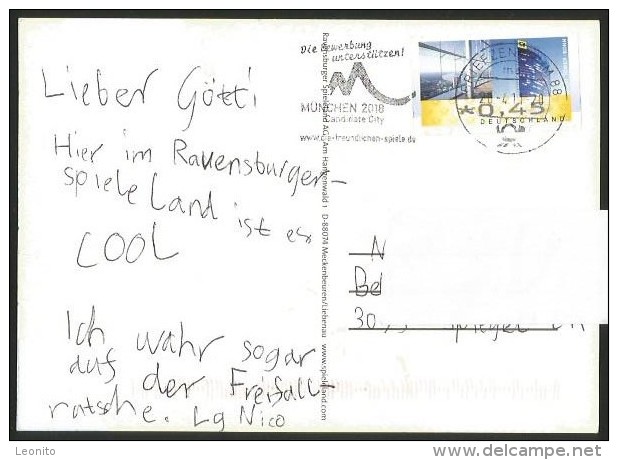 Lieber Götti
Hier im Ravensburger-
spiele Land ist es
COOL
Ich wahr sogar
auf der Freifall-
ratshe. Lg Nico
Ravensburger Spieleland AG, Am Hangenwald 1 D-88074 Meckenbeuren/Liebenau www.spieleland.com
Die Bewerbung
unterstützen!
MÜNCHEN 2018
Candidate City
www.die-freundlichen-spiele.de
BRIEFZENTRUM 88
*0,45
DEUTSCHLAND
N
Bel
Spiegel
Leonito
www.delcampe.net